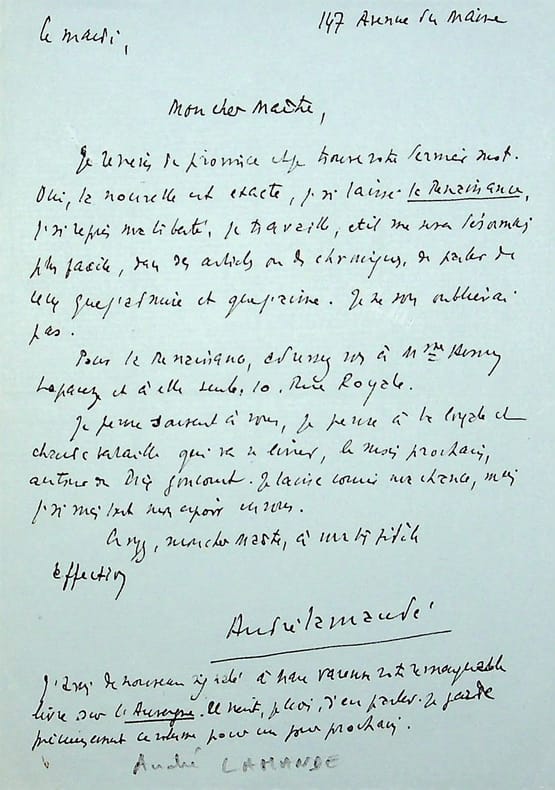 147 Avenue du Maine
Le mardi,
Mon cher Maître,
Je reviens de province et je trouve votre dernier mot.
Oui, la nouvelle est exacte, j'ai laissé la Renaissance,
j'ai repris ma liberté, je travaille, et il me sera désormais
plus facile, dans des articles ou des chroniques, de parler de
ceux que j'admire et que j'aime. Je ne vous oublierai
pas.
Pour la Renaissance, adressez vous à Mme Henry
Lapauze et à elle seule, 10, Rue Royale.
Je pense souvent à vous, je pense à la loyale et
chaude bataille qui va se livrer, le mois prochain,
autour du Prix Goncourt. Je laisse courir ma chance, mais
j'ai mis tout mon espoir en vous.
Croyez, mon cher Maître, à ma très fidèle
affection
André Lamandé
J'avais de nouveau signalé à Marc Varenne votre remarquable
livre sur l'Auvergne. Il vient, je crois, d'en parler. Je garde
précieusement ce volume pour un jour prochain.
André LAMANDE